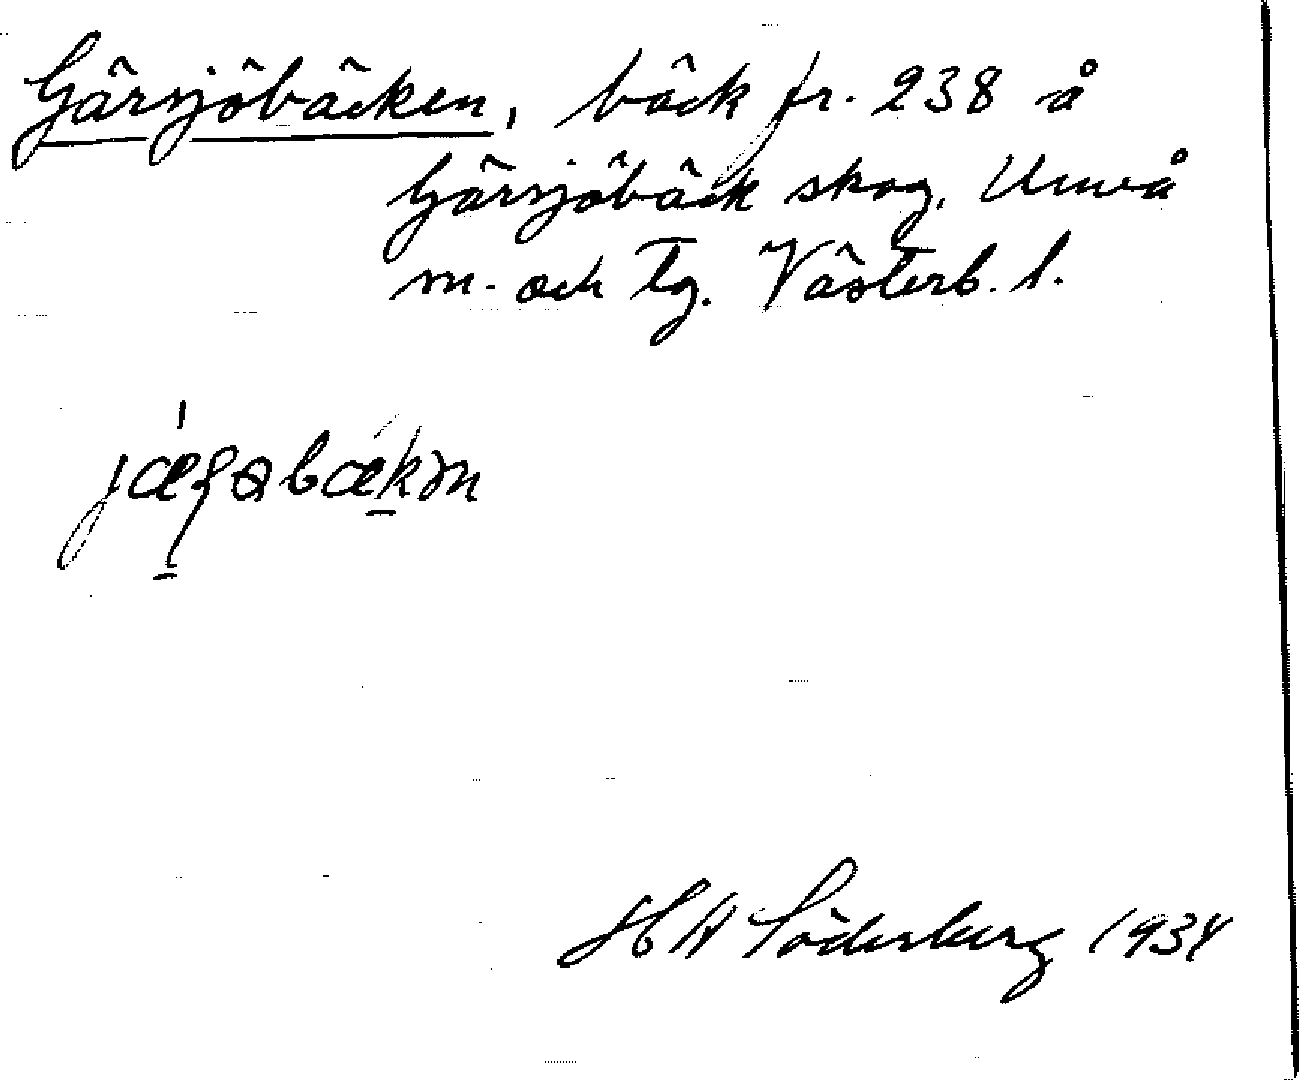 Gärsjöbäcken, bäck fr. 238 å
Gärsjöbäck skog, Umeå
m. och tg. Västerb. l.
jæʂɵbækən
H W Söderberg 1934